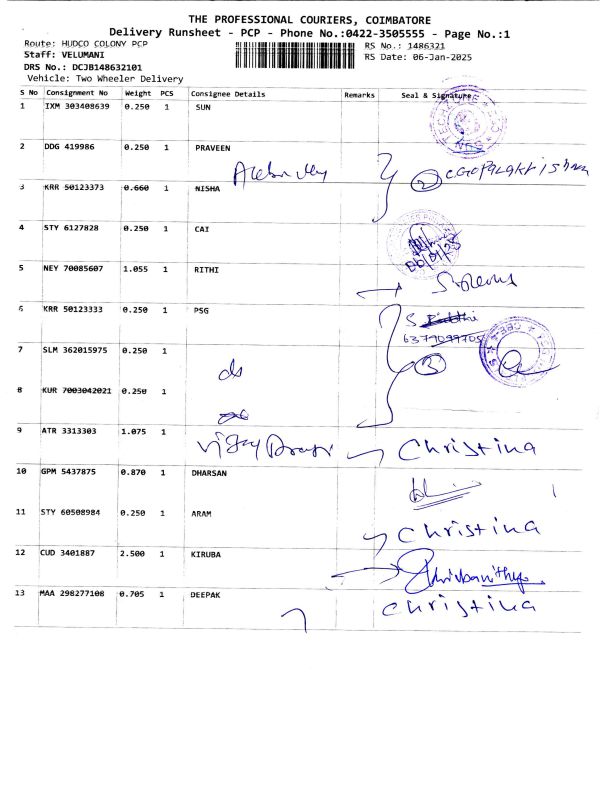 THE PROFESSIONAL COURIERS, COIMBATORE
Delivery Runsheet - PCP - Phone No.:0422-3505555 - Page No.:1
Route: HUDCO COLONY PCP
RS No.: 1486321
Staff: VELUMANI
RS Date: 06-Jan-2025
DRS No.: DCJB148632101
Vehicle: Two Wheeler Delivery
S No Consignment No Weight PCS Consignee Details Remarks Seal & Signature
1 IXM 303408639 0.250 1 SUN
2 DDG 419986 0.250 1 PRAVEEN
2 C GOPALAKRISHNA
3 KRR 50123373 0.660 1 NISHA
4 STY 6127828 0.250 1 CAI
06/01/25
5 NEY 70085607 1.055 1 RITHI
6 KRR 50123333 0.250 1 PSG
6379099705
7 SLM 362015975 0.250 1
3
ds
8 KUR 7003042021 0.250 1
9 ATR 3313303 1.075 1
Christina
10 GPM 5437875 0.870 1 DHARSAN
11 STY 60508984 0.250 1 ARAM
Christina
12 CUD 3401887 2.500 1 KIRUBA
13 MAA 298277108 0.705 1 DEEPAK
Christina